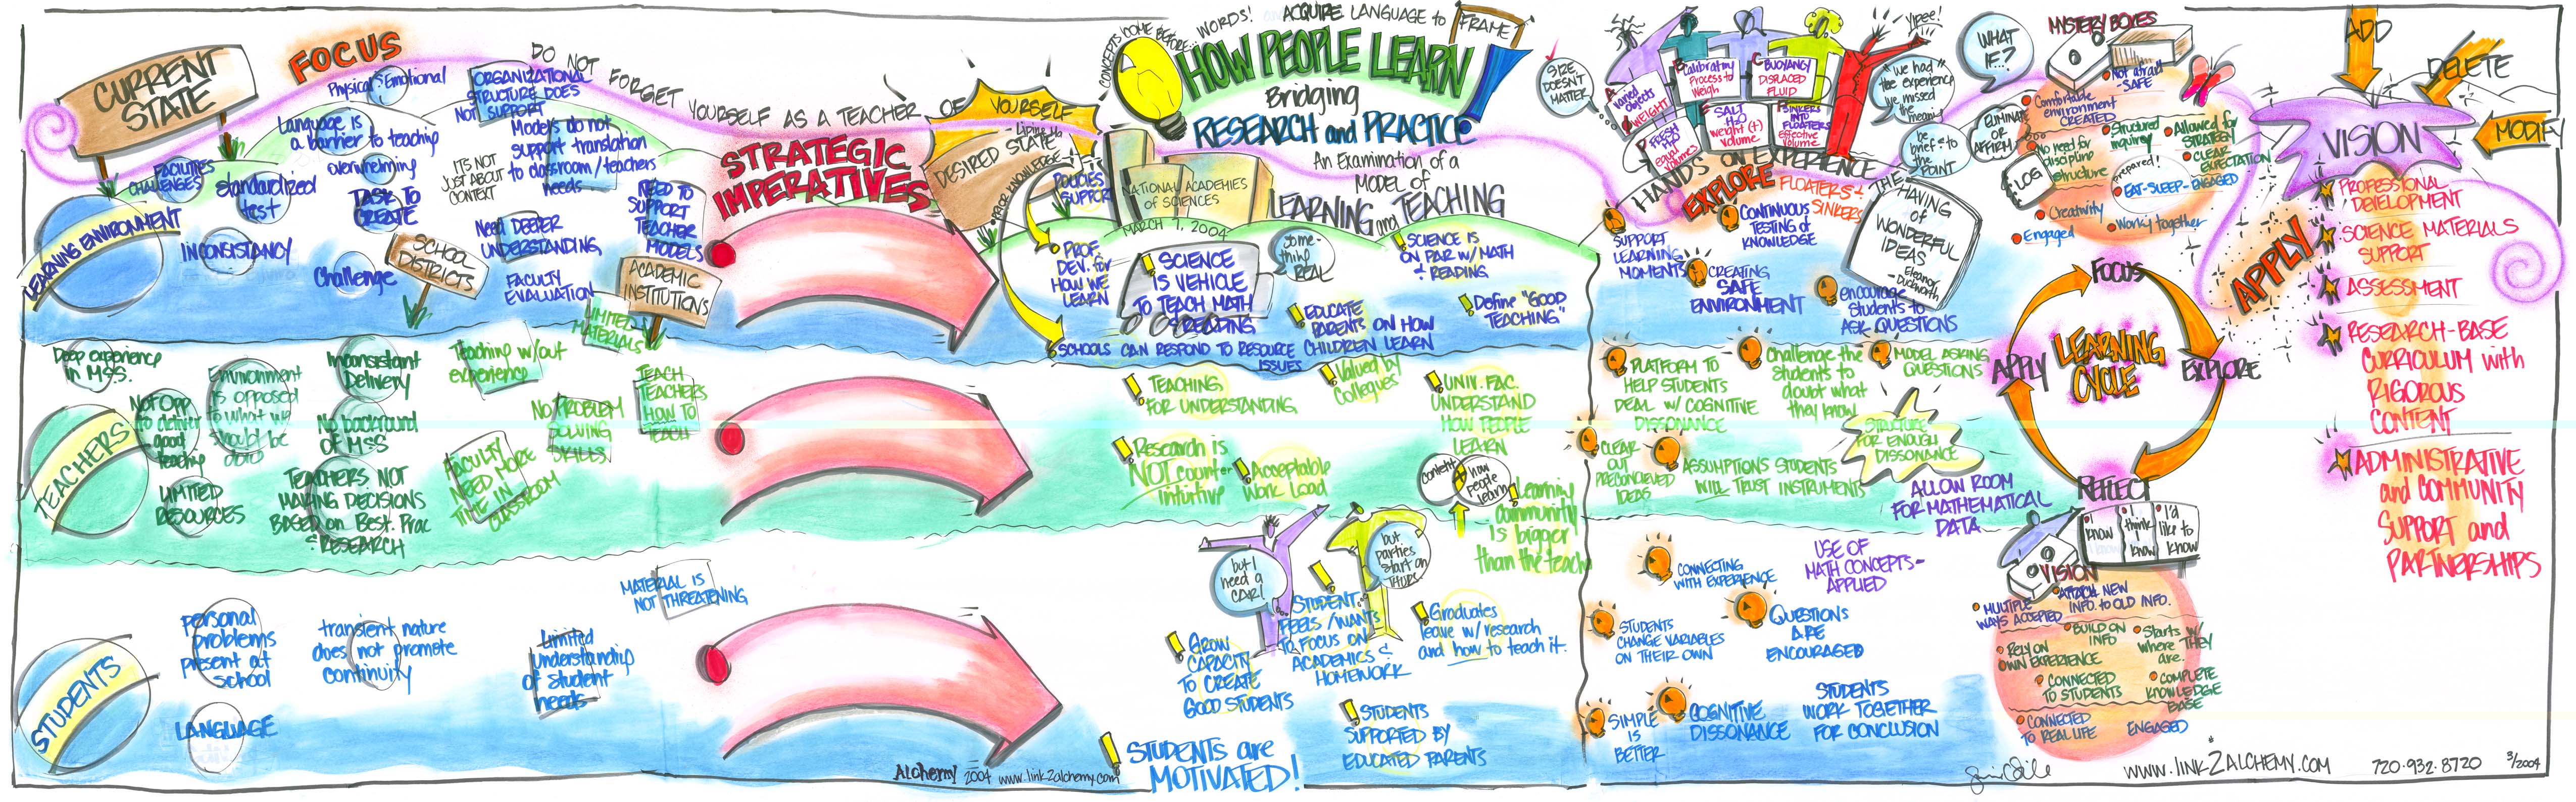 CURRENT
STATE
FOCUS
Physical & Emotional
ORGANIZATIONAL
STRUCTURE DOES
NOT SUPPORT
Language is
a barrier to teaching
overwhelming
Models do not
support translation
to classroom/teachers
needs
FACILITIES
CHALLENGES
standardized
test
TASK TO
CREATE
IT'S NOT
JUST ABOUT
CONTEXT
NEED TO
SUPPORT
TEACHER
MODELS
LEARNING ENVIRONMENT
INCONSISTANCY
Challenge
Need DEEPER
UNDERSTANDING
SCHOOL
DISTRICTS
FACULTY
EVALUATION
ACADEMIC
INSTITUTIONS
LIMITED
MATERIALS
DO NOT FORGET YOURSELF AS A TEACHER OF YOURSELF
STRATEGIC
IMPERATIVES
DESIRED STATE
PRIOR KNOWLEDGE
Deep experience
in M.S.S.
Inconsistant
Delivery
Teaching w/out
experience
Environment
is opposed
to what we
should be
doing
Not Opp
to deliver
good
teaching
No background
of M.S.S
NO PROBLEM
SOLVING
SKILLS
TEACH
TEACHERS
HOW TO
TEACH
TEACHERS
LIMITED
RESOURCES
TEACHERS NOT
MAKING DECISIONS
BASED on Best. Prac
& RESEARCH
FACULTY
NEED MORE
TIME IN
CLASSROOM
MATERIAL IS
NOT THREATENING
STUDENTS
personal
problems
present at
school
transient nature
does not promote
continuity
Limited
understandig
of student
needs
LANGUAGE
Alchemy 2004 www.link2alchemy.com
CONCEPTS COME BEFORE... WORDS!
ACQUIRE LANGUAGE to
FRAME
HOW PEOPLE LEARN
Bridging
RESEARCH and PRACTICE
An Examination of a
Model of
LEARNING and TEACHING
NATIONAL ACADEMIES
of SCIENCES
MARCH 7, 2004
POLICIES
SUPPORT
PROF.
DEV. for
HOW WE
LEARN
SCIENCE
IS VEHICLE
TO TEACH MATH
& READING
some-
thing
REAL
SCIENCE IS
ON PAR w/ MATH
& READING
EDUCATE
PARENTS ON HOW
CHILDREN LEARN
Define "GOOD
TEACHING"
SCHOOLS CAN RESPOND TO RESOURCE
ISSUES
TEACHING
FOR UNDERSTANDING
Valued by
Collegues
UNIV. FAC.
UNDERSTAND
HOW PEOPLE
LEARN
Research is
NOT counter-
intuitive
Acceptable
Work Load
content
how
people
learn
Learning
community
is bigger
than the teach
but I
need a
CAR!
but
parties
start on
THURS.
GROW
CAPACITY
TO CREATE
GOOD STUDENTS
STUDENT
FEELS/WANTS
TO FOCUS ON
ACADEMICS &
HOMEWORK
Graduates
leave w/ research
and how to teach it.
STUDENTS
SUPPORTED BY
EDUCATED PARENTS
STUDENTS are
MOTIVATED!
SIZE
DOESN'T
MATTER
A
varied
objects
WEIGHT
B
Calibratn
Process to
Weigh
C
BUOYANCY
DISPLACED
FLUID
D
FRESH
equal
Volumes
E
SALT
H2O
weight (+)
volume
F
SINKERS
INTO
FLOATERS
effective
volume
Yipee!
"we had"
the experience
we missed
the meaning
be
brief - to
the
POINT
HANDS ON EXPERIENCE
EXPLORE
FLOATERS &
SINKERS
THE HAVING
of
WONDERFUL
IDEAS
- Eleanor
Duckworth
SUPPORT
LEARNING
MOMENTS
CONTINUOUS
TESTING of
KNOWLEDGE
CREATING
SAFE
ENVIRONMENT
encourage
Students to
ASK QUESTIONS
PLATFORM TO
HELP STUDENTS
DEAL w/ COGNITIVE
DISSONANCE
Challenge the
students to
doubt what
they know
MODEL ASKING
QUESTIONS
CLEAR
OUT
PRECONCIEVED
IDEAS
ASSUMPTIONS STUDENTS
WILL TRUST INSTRUMENTS
STRUCTURE
FOR ENOUGH
DISSONANCE
ALLOW ROOM
FOR MATHEMATICAL
DATA
CONNECTING
WITH EXPERIENCE
USE OF
MATH CONCEPTS -
APPLIED
STUDENTS
CHANGE VARIABLES
ON THEIR OWN
QUESTIONS
ARE
ENCOURAGED
SIMPLE
IS
BETTER
COGNITIVE
DISSONANCE
STUDENTS
WORK TOGETHER
FOR CONCLUSION
WHAT
IF?
MYSTERY BOXES
Not afraid
- SAFE
Comfortable
environment
CREATED
ELIMINATE
OR
AFFIRM
No need for
discipline
structure
Structured
inquirey
Allowed for
STRATEGY
CLEAR
EXPECTATION
LOG
prepared!
EAT-SLEEP-ENGAGED
Creativity
Working together
Engaged
FOCUS
EXPLORE
REFLECT
APPLY
LEARNING
CYCLE
I
know
I
think I
know
I'd
like to
know
VISION
MULTIPLE
WAYS ACCEPTED
ATTACH NEW
INFO. to OLD INFO.
BUILD ON
INFO
Starts w/
where THEY
are.
RELY ON
OWN EXPERIENCE
CONNECTED
TO STUDENTS
COMPLETE
KNOWLEDGE
BASE
CONNECTED
TO REAL LIFE
ENGAGED
ADD
DELETE
MODIFY
VISION
APPLY
PROFESSIONAL
DEVELOPMENT
SCIENCE MATERIALS
SUPPORT
ASSESSMENT
RESEARCH-BASE
CURRICULUM with
RIGOROUS
CONTENT
ADMINISTRATIVE
and COMMUNITY
SUPPORT and
PARTNERSHIPS
www.link2alchemy.com 720.932.8720 3/2004